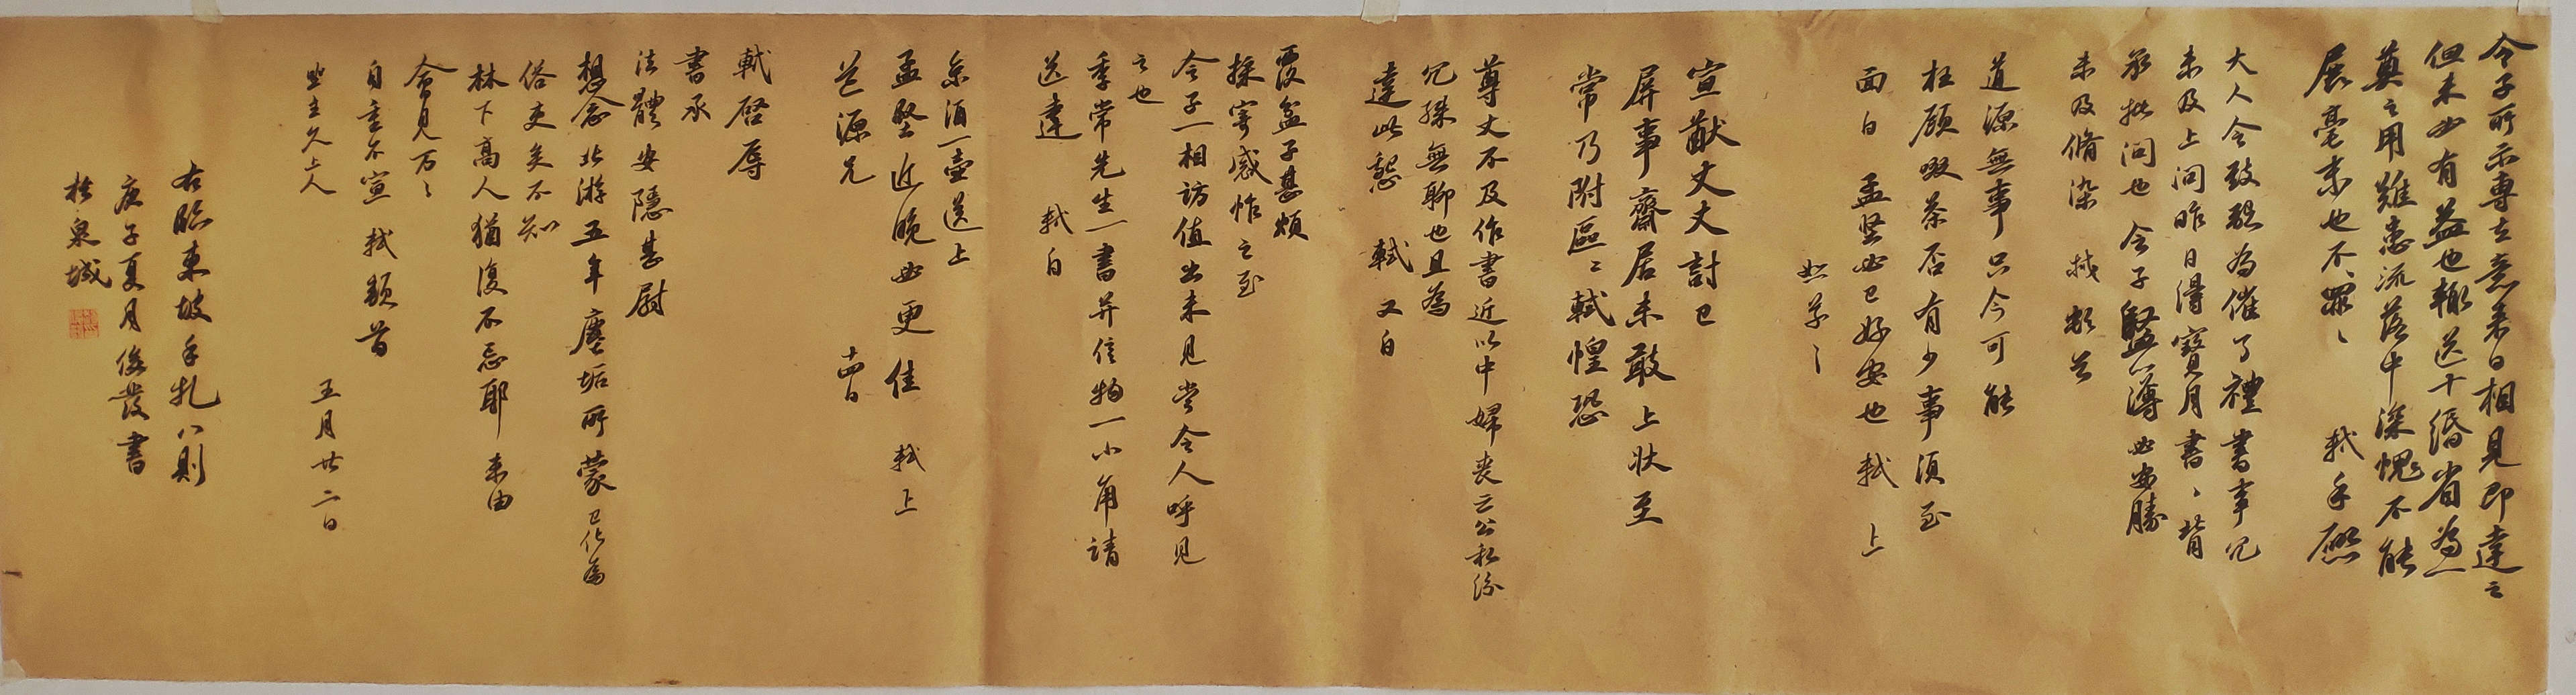 令子所示專在意來日相見即達之
但未必有益也輒送十縑省為一
奠之用難患流落中深愧不能
展毫末也不罪〻　軾手啟
大人令致懇為催了禮書事冗
未及上問昨日得寶月書〻背
承批問也令子監簿必安勝
未及脩染　軾頓首
道源無事只今可能
枉顧啜茶否有少事須至
面白孟堅必已好安也軾上
恕草〻
宣猷丈丈計已
屏事齋居未敢上狀至
常乃附區〻軾惶恐
尊丈不及作書近以中婦喪亡公私紛
冗殊無聊也且為
達此懇　軾又白
覆盆子甚煩
採寄感怍之至
令子一相訪值出未見當令人呼見
之也
季常先生一書并信物一小角請
送達　軾白
柰酒一壺送上
孟堅近晚必更佳　軾上
道源兄　十四日
軾啓辱
書承
法體安隱甚慰
想念北游五年塵垢所蒙已化為
俗吏矣不知
林下高人猶復不忘耶未由
會見万〻
自重不宣　軾頓首
坐主久上人　五月廿二日
右臨東坡手札八則
庚子夏月俊發書
於泉城